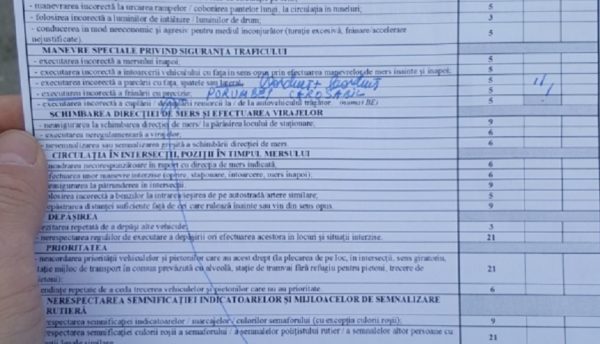 - manevrarea incorectă la urcarea rampelor / coborârea pantelor lungi, la circulația în tuneluri; 5
- folosirea incorectă a luminilor de întâlnire / luminilor de drum; 3
- conducerea în mod neeconomic și agresiv pentru mediul înconjurător (turație excesivă, frânare/accelerare nejustificate). 5
MANEVRE SPECIALE PRIVIND SIGURANȚA TRAFICULUI
- executarea incorectă a mersului înapoi; 5
- executarea incorectă a întoarcerii vehiculului cu fața în sens opus prin efectuarea manevrelor de mers înainte și înapoi; 5
- executarea incorectă a parcării cu fața, spatele sau lateral; Bordură + Bordură 5
- executarea incorectă a frânării cu precizie; CAROSABIL 5
- executarea incorectă a cuplării / decuplării remorcii la / de la autovehiculul trăgător. (numai BE) 5
SCHIMBAREA DIRECȚIEI DE MERS ȘI EFECTUAREA VIRAJELOR
- neasigurarea la schimbarea direcției de mers/ la părăsirea locului de staționare; 9
- executarea neregulamentară a virajelor; 6
- nesemnalizarea sau semnalizarea greșită a schimbării direcției de mers. 6
CIRCULAȚIA ÎN INTERSECȚII, POZIȚII ÎN TIMPUL MERSULUI
necorespunzătoare în raport cu direcția de mers indicată; 6
efectuarea unor manevre interzise (oprire, staționare, întoarcere, mers înapoi); 6
neasigurarea la pătrunderea în intersecții; 9
folosirea incorectă a benzilor la intrarea/ieșirea de pe autostradă/artere similare; 5
distanței suficiente față de cei care rulează înainte sau vin din sens opus. 9
DEPĂȘIREA
ezitarea repetată de a depăși alte vehicule; 3
- nerespectarea regulilor de executare a depășirii ori efectuarea acestora în locuri și situații interzise. 21
PRIORITATEA
- neacordarea priorității vehiculelor și pietonilor care au acest drept (la plecarea de pe loc, în intersecții, sens giratoriu, stație mijloc de transport în comun prevăzută cu alveolă, stație de tramvai fără refugiu pentru pietoni, trecere de pietoni); 21
tendințe repetate de a ceda trecerea vehiculelor și pietonilor care nu au prioritate. 6
NERESPECTAREA SEMNIFICAȚIEI INDICATOARELOR ȘI MIJLOACELOR DE SEMNALIZARE RUTIERĂ
respectarea semnificației indicatoarelor / marcajelor / culorilor semaforului (cu excepția culorii roșii); 9
respectarea semnificației culorii roșii a semaforului / a semnalelor polițistului rutier / a semnalelor altor persoane cu 21